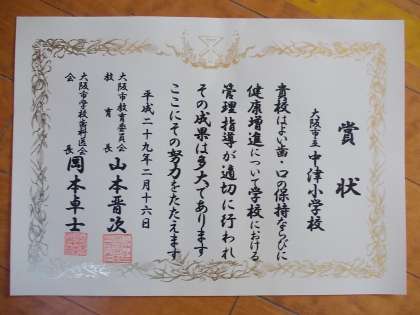 賞状
大阪市立中津小学校
貴校はよい歯・口の保持ならびに
健康増進について学校における
管理指導が適切に行われ
その成果は多大であります
ここにその努力をたたえます
平成二十九年二月十六日
大阪市教育委員会
教育長 山本晋次
大阪市学校歯科医会
会長 岡本卓士